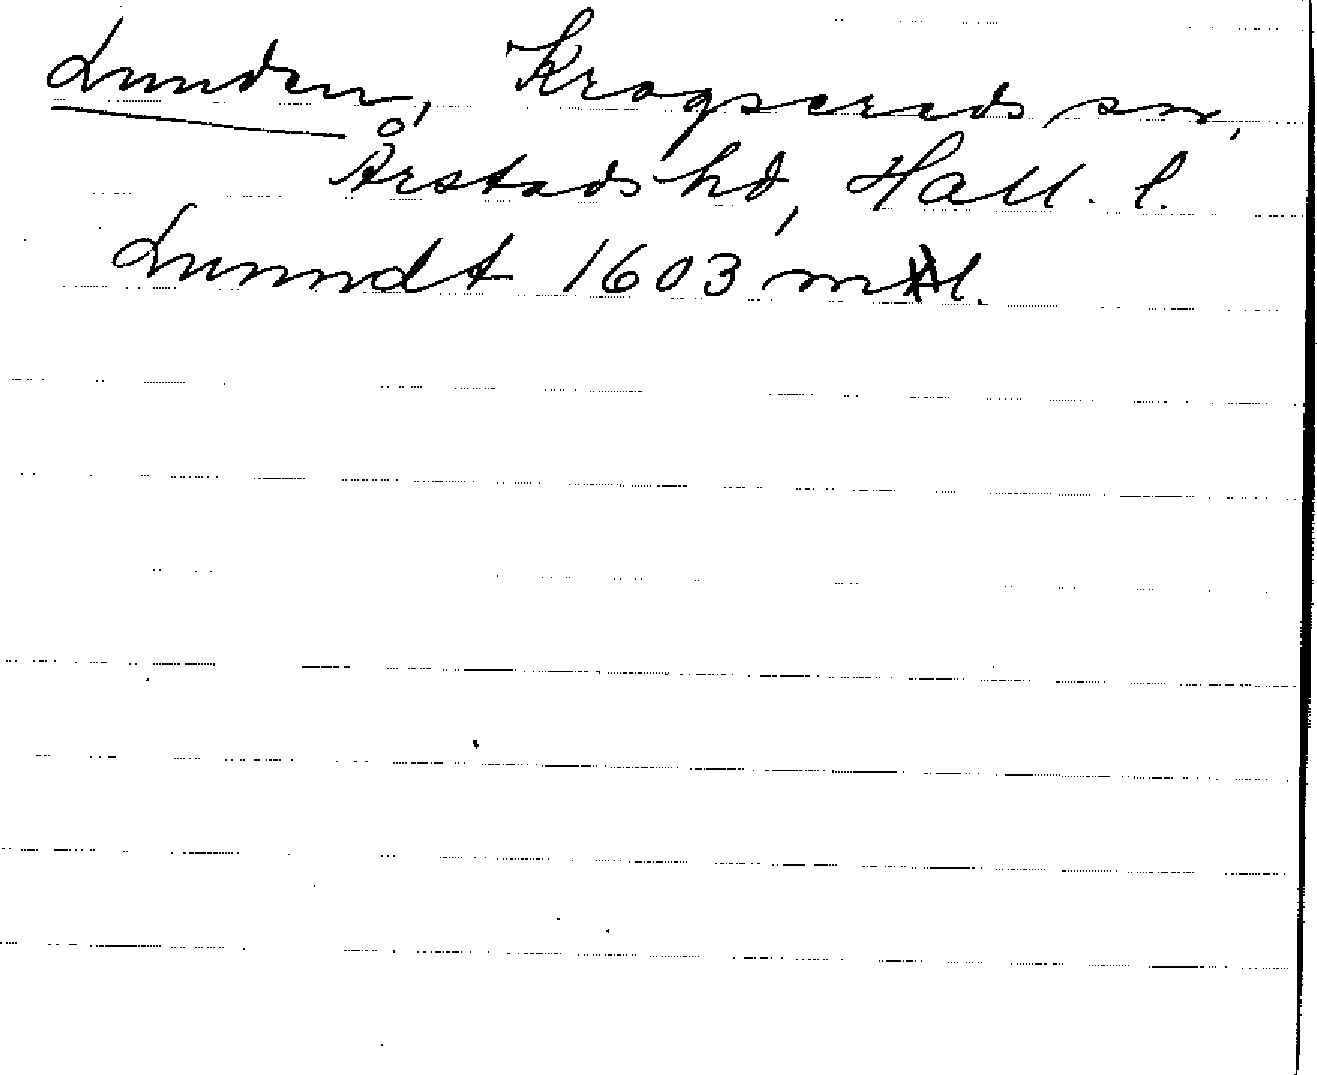 Lunden, Krogsereds sn,
Årstads hd, Hall. l.
Lunndt 1603